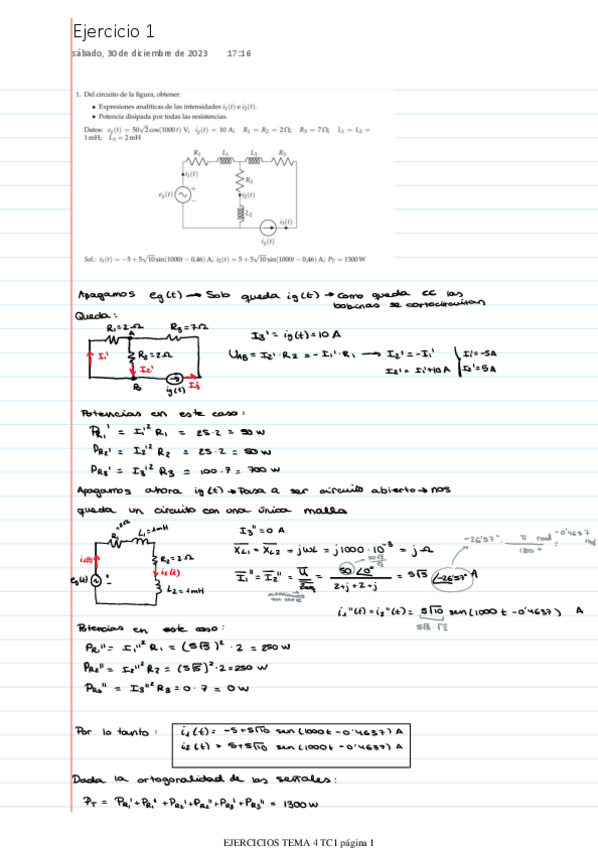 Ejercicio 1
sábado, 30 de diciembre de 2023 17:16
1. Del circuito de la figura, obtener:
• Expresiones analíticas de las intensidades i₁(t) e i₂(t).
• Potencia disipada por todas las resistencias.
Datos: e_g(t) = 50√2 cos(1000t) V; i_g(t) = 10 A; R₁ = R₂ = 2 Ω; R₃ = 7 Ω; L₁ = L₂ =
1 mH; L₃ = 2 mH
R₁ L₁ L₃ R₃
i₁(t)
R₂
e_g(t) + −
i₂(t)
L₂
i₃(t)
i_g(t)
Sol.: i₁(t) = −5 + 5√10 sin(1000t − 0,46) A; i₂(t) = 5 + 5√10 sin(1000t − 0,46) A; P_T = 1300 W
Apagamos eg(t) → Solo queda ig(t) → Como queda CC las
bobinas se cortocircuitan
Queda:
R₁=2Ω A R₃=7Ω
I₃' = ig(t) = 10 A
I₁' R₂=2Ω I₂' B ig(t) I₃
U_AB = I₂' · R₂ = − I₁' · R₁ → I₂' = −I₁' I₁' = −5A
I₂' = I₁' + 10 A I₂' = 5 A
Potencias en este caso:
P_R₁' = I₁'² R₁ = 25 · 2 = 50 W
P_R₂' = I₂'² R₂ = 25 · 2 = 50 W
P_R₃' = I₃'² R₃ = 100 · 7 = 700 W
Apagamos ahora ig(t) → Pasa a ser circuito abierto → nos
queda un circuito con una única malla
2Ω R₁ L₁=1mH
I₃'' = 0 A
−26'57° · π rad / 180° = −0'4637 rad
X_L₁ = X_L₂ = jωL = j1000 · 10⁻³ = j Ω
R₂=2Ω
i₂(t)
eg(t) + −
L₂=1mH
I₁'' = I₂'' = U / Z_eq = 50 ∠0° / 2+j+2+j = 5√5 ∠−26'57° A
i₁''(t) = i₂''(t) = 5√10 sen (1000t − 0'4637) A
5√5 · √2
Potencias en este caso:
P_R₁'' = I₁''² R₁ = (5√5)² · 2 = 250 W
P_R₂'' = I₂''² R₂ = (5√5)² · 2 = 250 W
P_R₃'' = I₃''² R₃ = 0 · 7 = 0 W
Por lo tanto:
i₁(t) = −5+5√10 sen (1000t − 0'4637) A
i₂(t) = 5+5√10 sen (1000t − 0'4637) A
Dada la ortogonalidad de las señales:
P_T = P_R₁' + P_R₁' + P_R₃' + P_R₂'' + P_R₃' + P_R₃'' = 1300 W
EJERCICIOS TEMA 4 TC1 página 1